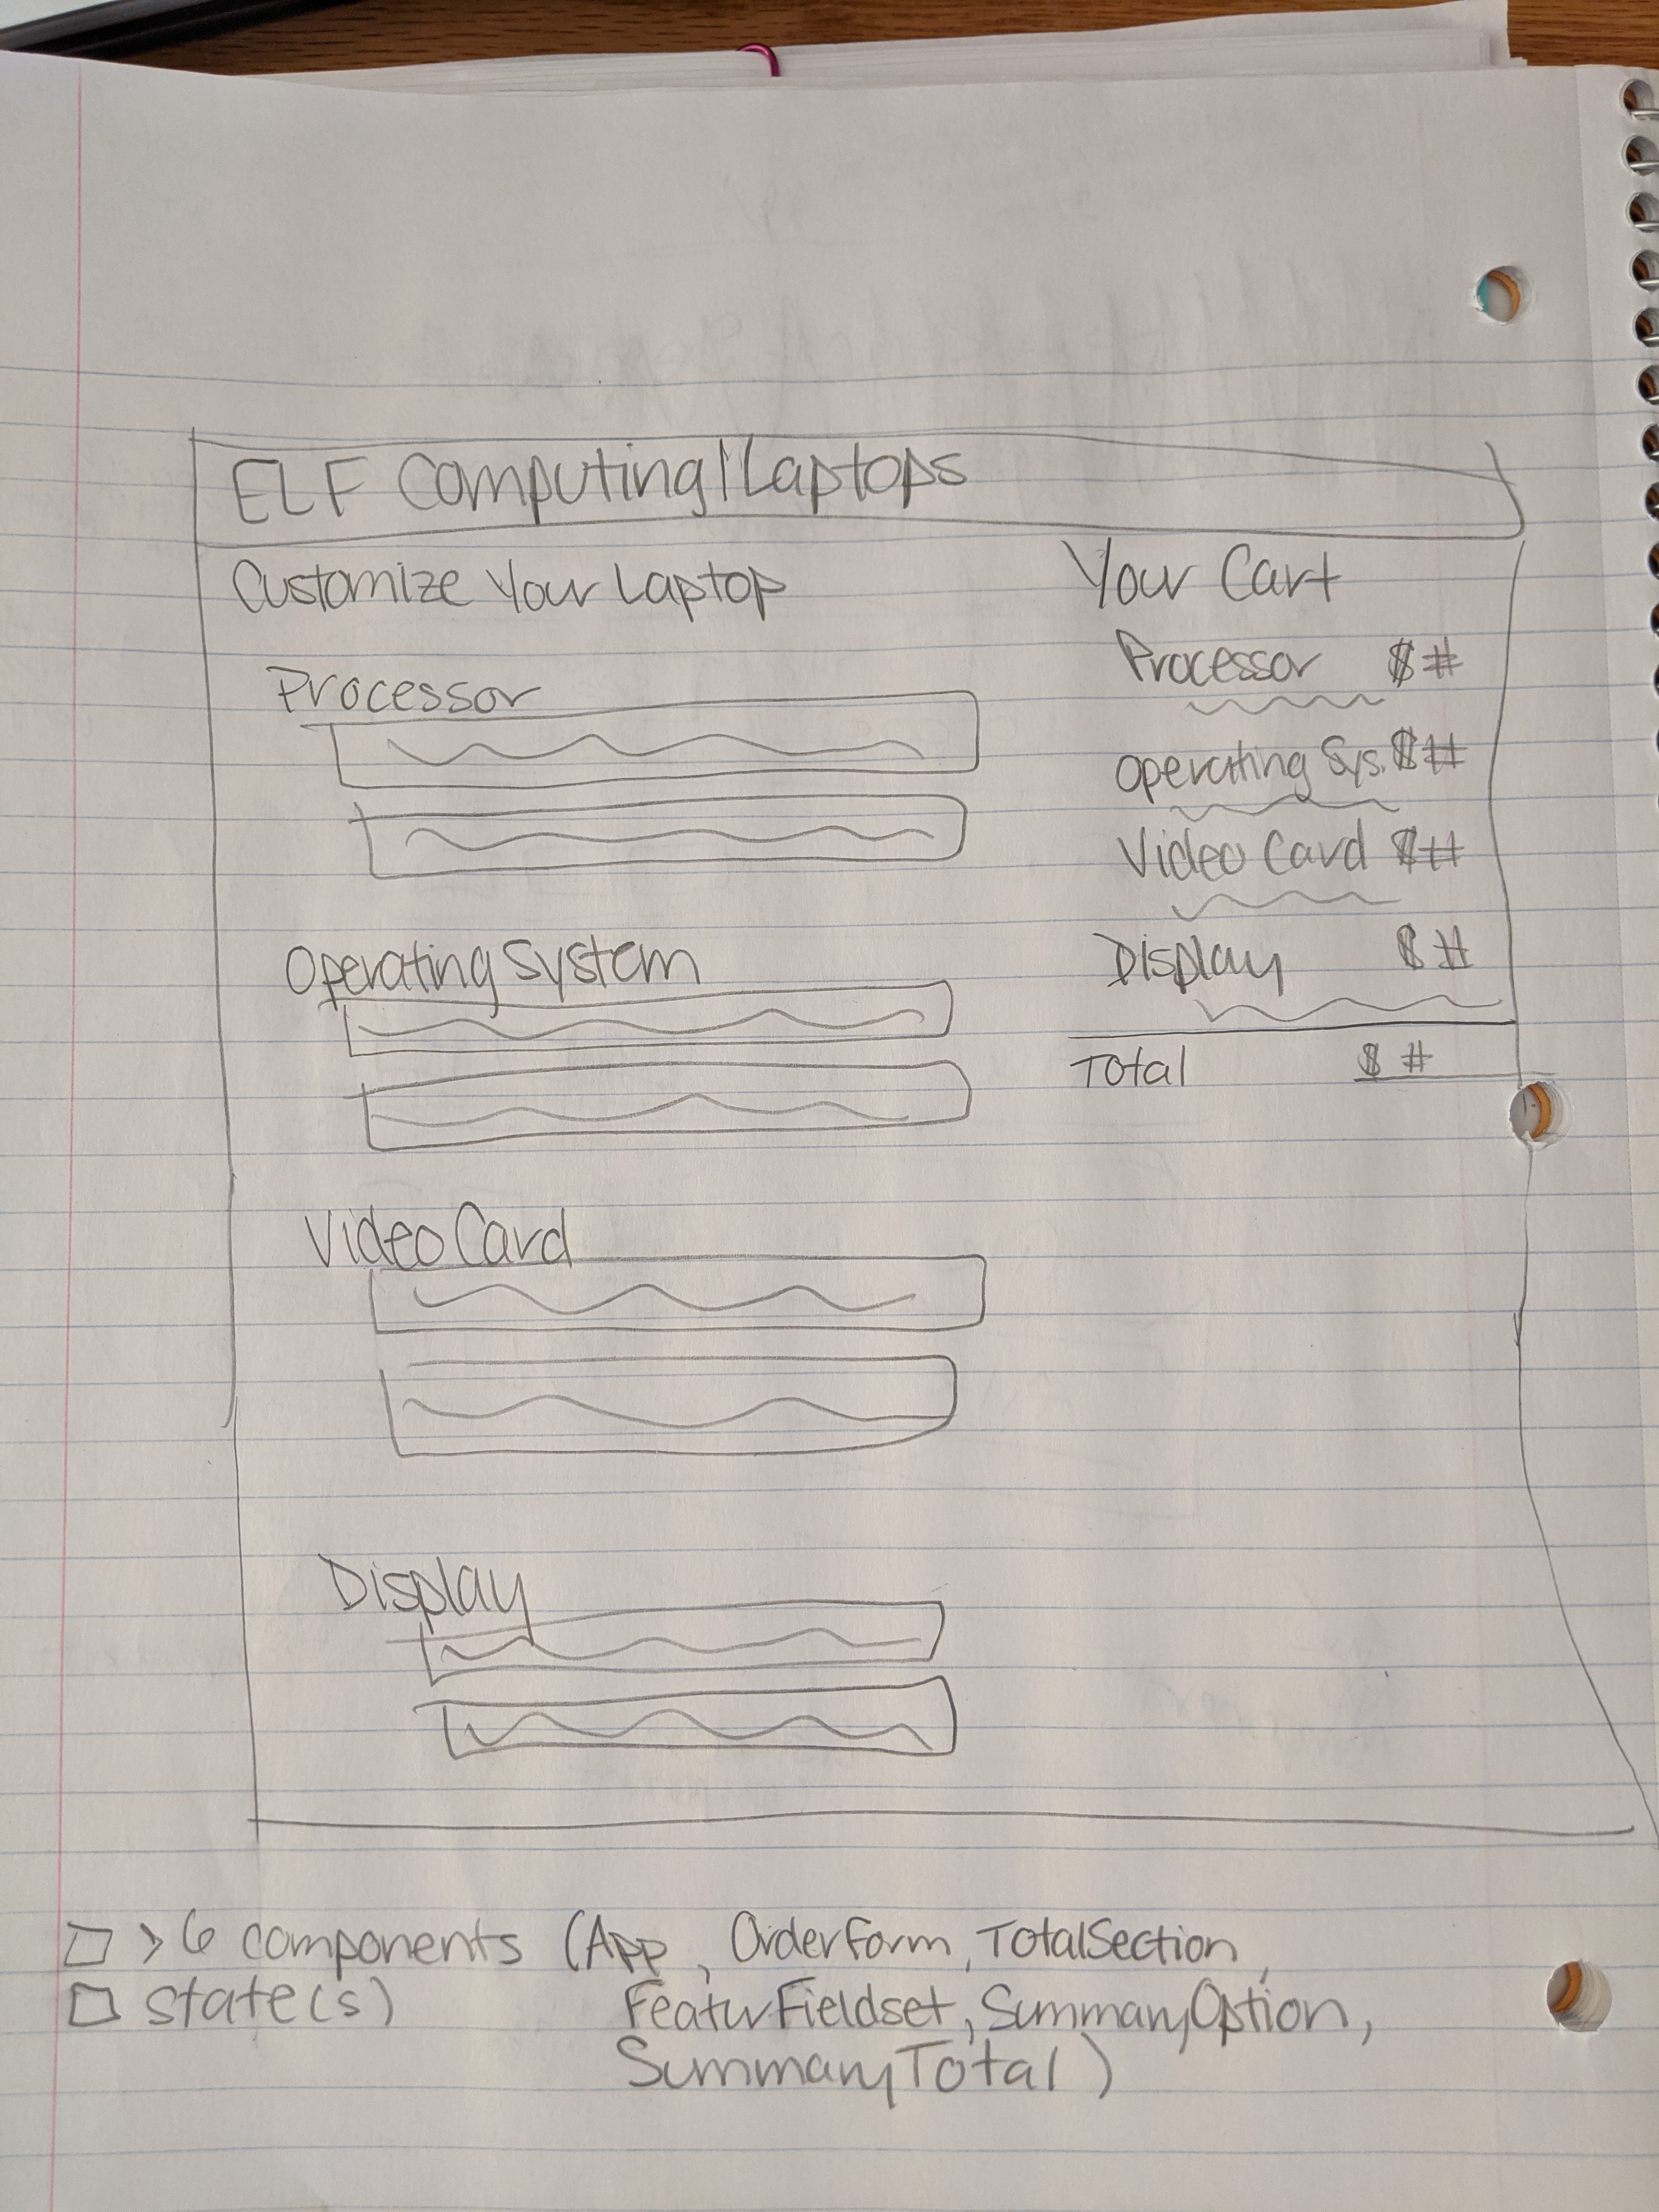 ELF Computing|Laptops
Customize Your Laptop
Processor
Operating System
Video Card
Display
Your Cart
Processor $#
Operating Sys. $#
Video Card $#
Display $#
Total $#
> 6 components (App, OrderForm, TotalSection,
state(s) FeaturFieldset, SummaryOption,
SummaryTotal)